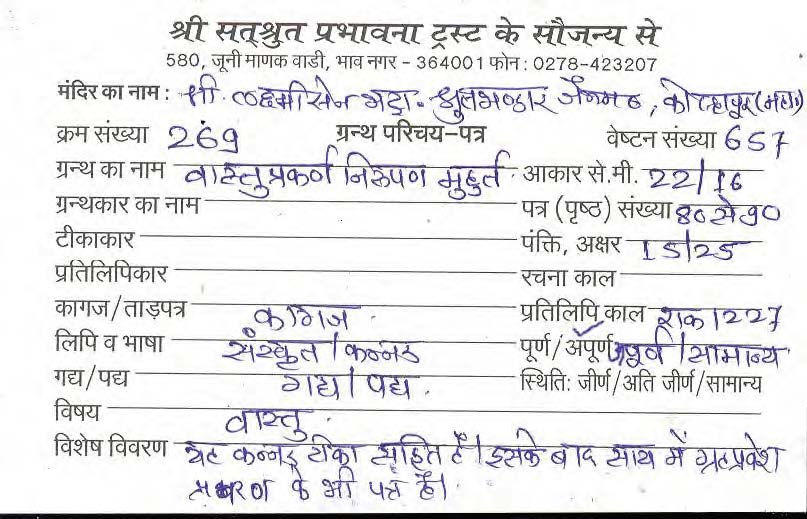 श्री सत्श्रुत प्रभावना ट्रस्ट के सौजन्य से
580, जूनी माणक वाडी, भाव नगर - 364001 फोन : 0278-423207
मंदिर का नाम : श्री. लक्ष्मीसेन भट्टा. जैनमठ, कोल्हापूर (महा)
क्रम संख्या 269 ग्रन्थ परिचय-पत्र वेष्टन संख्या 657
ग्रन्थ का नाम वास्तुप्रकर्ण निरुपण मुहुर्त आकार से.मी. 22/16
ग्रन्थकार का नाम पत्र (पृष्ठ) संख्या 80 से 90
टीकाकार पंक्ति, अक्षर 15/25
प्रतिलिपिकार रचना काल
कागज/ताड़पत्र कागज. प्रतिलिपि काल शक 1227
लिपि व भाषा संस्कृत / कन्नड पूर्ण/अपूर्ण अपूर्ण / सामान्य
गद्य/पद्य गद्य / पद्य. स्थिति: जीर्ण/अति जीर्ण/सामान्य
विषय वास्तु.
विशेष विवरण यह कन्नड़ टीका सहित है। इसके बाद साथ में ग्रहप्रवेश
प्रकरण के भी पत्र है।